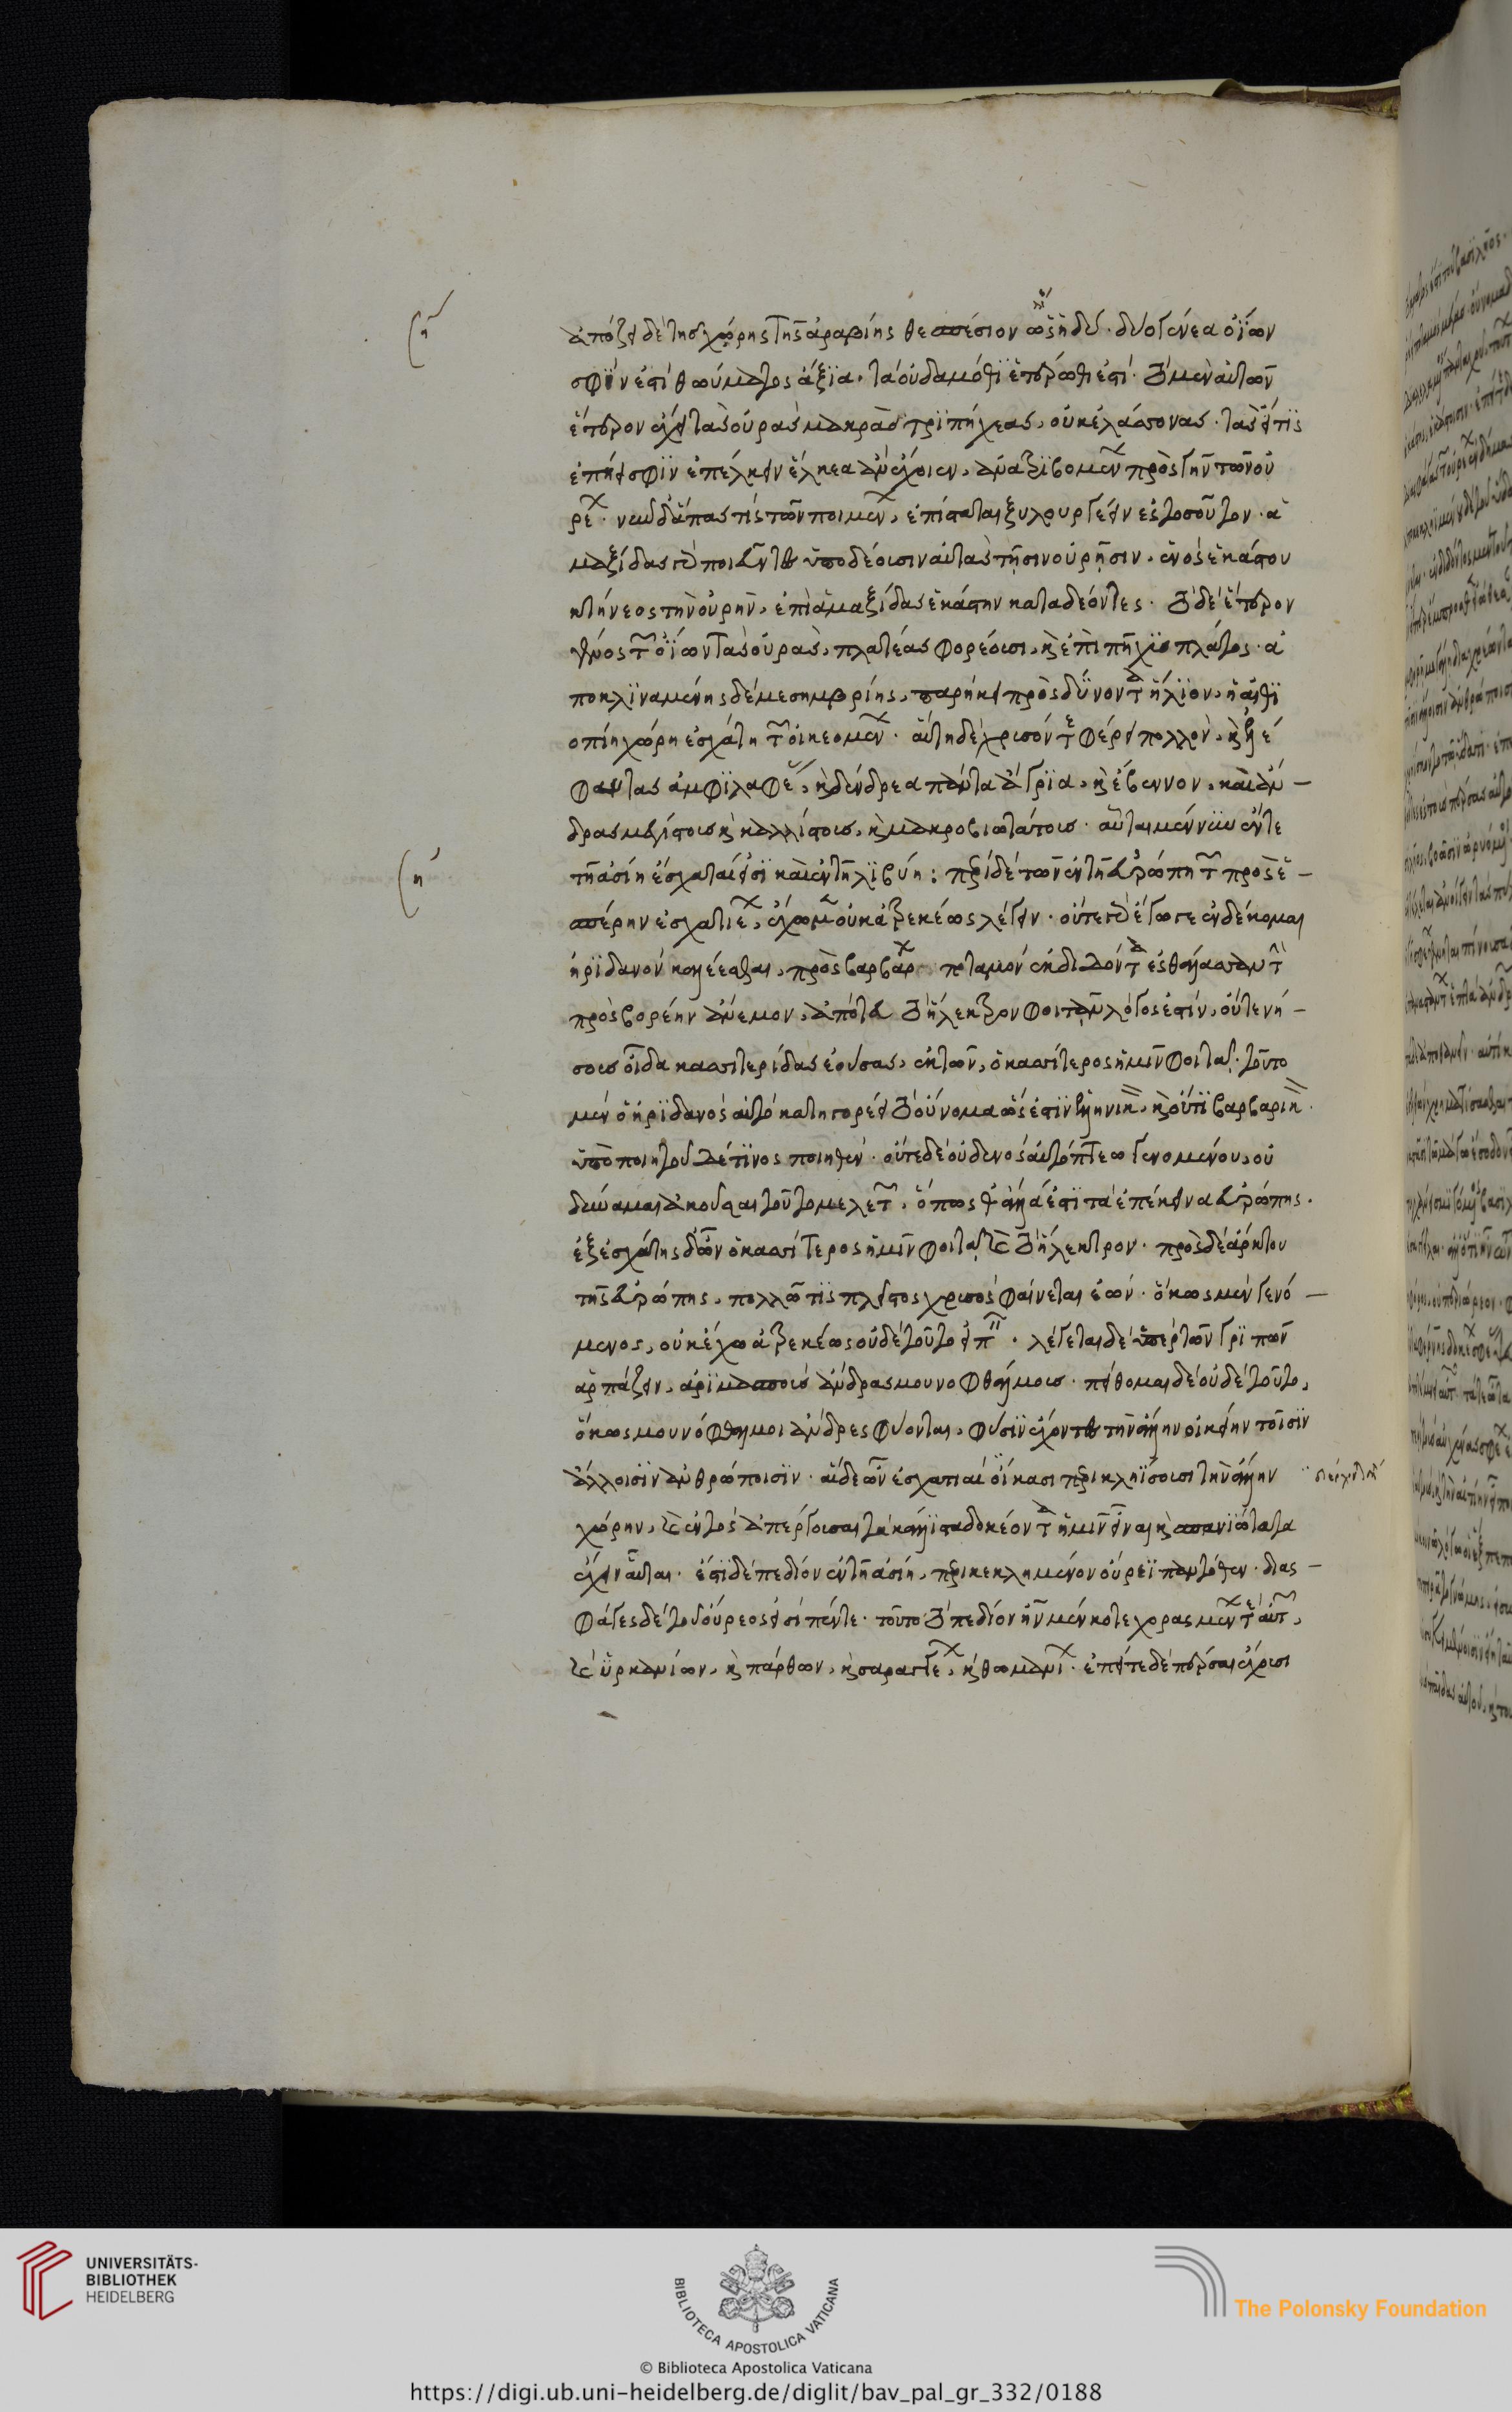 ἀπόζει δὲ τῆς χώρης τῆς ἀραβίης θεσπέσιον ὡς ἡδύ· δύο γένεα ὀΐων
σφϊν ἐστὶ θωύματος ἄξϊα· τὰ οὐδαμόθϊ ἑτέρωθι ἐστί· τὸ μὲν αὐτῶν
ἕτερον ἔχει τὰς οὐρὰς μακρὰς τρϊπήχεας, οὐκ ἐλάσσονας· τὰς εἴ τϊς
ἐπείη σφϊν ἐπέλκειν ἕλκεα ἂν ἔχοιεν, ἀνατρϊβομένων πρὸς τῆν τῶν οὐ
ρέων· νῦν δ' ἅπας τίς τῶν ποιμένων, ἐπίσταται ξυλουργέειν ἐς τοσοῦτον· ἁ
μαξίδας γὰρ ποιεῦντες ὑποδέουσιν αὐτὰς τῇσιν οὐρῇσιν, ἑνὸς ἑκάστου
κτήνεος τὴν οὐρὴν, ἐπὶ ἁμαξίδας ἑκάστην καταδέοντες· τὸ δὲ ἕτερον
γένος τῶν ὀΐων τὰς οὐρὰς, πλατέας φορέουσι, καὶ ἐπὶ πῆχϊν πλάτος· ἀ
ποκλϊναμένης δὲ μεσημβρίης, παρήκει πρὸς δύνοντα ἥλϊον, ἡ αἰθϊ
οπίη χώρη ἐσχάτη τῶν οἰκεομένων· αὕτη δὲ χρυσόν τε φέρει πολλὸν, καὶ ἐλέ
φαντας ἀμφϊλαφέας, καὶ δένδρεα πάντα ἄγρϊα, καὶ ἔβεννον, καὶ ἄν –
δρας μεγίστους καὶ καλλίστους, καὶ μακροβιωτάτους· αὗται μέν νυν ἔν τε
τῇ ἀσίῃ ἐσχατιαί εἰσϊ καὶ ἐν τῇ λϊβύῃ: περὶ δὲ τῶν ἐν τῇ εὐρώπῃ τῶν πρὸς ἑ –
σπέρην ἐσχατιέων, ἔχω μὲν οὐκ ἀτρεκέως λέγειν· οὔτε γὰρ ἔγωγε ἐνδέκομαι
ἠρϊδανόν καλέεσθαι, πρὸς βαρβάρων ποταμὸν ἐκδιδόντα ἐς θάλασσαν τὴν
πρὸς βορέην ἄνεμον, ἀπότευ τὸ ἤλεκτρον φοιτᾶν λόγος ἐστίν, οὔτε νή –
σους οἶδα κασσιτερίδας ἐούσας, ἐκ τῶν, ὁ κασσίτερος ἡμῖν φοιτᾷ· τοῦτο
μὲν ὁ ἠρϊδανὸς αὐτὸ κατηγορέει τὸ οὔνομα ὡς ἐστϊν ἑλληνικὸν, καὶ οὔτϊ βαρβαρικὸν·
ὑπὸ ποιητοῦ δέ τϊνος ποιηθὲν· οὔτε δὲ οὐδενὸς αὐτόπτεω γενομένου, οὐ
δύναμαι ἀκοῦσαι τοῦτο μελετῶν, ὅπως θάλασσά ἐστϊ τὰ ἐπέκεινα εὐρώπης·
ἐξ ἐσχάτης δ' ὦν ὁ κασσίτερος ἡμῖν φοιτᾷ, καὶ τὸ ἤλεκτρον· πρὸς δὲ ἄρκτου
τῆς εὐρώπης, πολλῶ τϊ πλεῖστος χρυσὸς φαίνεται ἐὼν· ὅκως μὲν γενό –
μενος, οὐκ ἔχω ἀτρεκέως οὐδὲ τοῦτο εἶπαι· λέγεται δὲ ὑπὲρ τῶν γρϊπῶν
ἁρπάζειν, ἀρϊμασποὺς ἄνδρας μουνοφθάλμους· πείθομαι δὲ οὐδὲ τοῦτο,
ὅκως μουνόφθαλμοι ἄνδρες φύονται, φύσϊν ἔχοντες τὴν ἄλλην οἰκείην τοῖσϊν
ἄλλοισϊν ἀνθρώποισϊν· αἱ δὲ ὦν ἐσχατιαὶ οἴκασι περικληΐσουσι τὴν ἄλλην
χώρην, καὶ ἐντὸς ἀπέργουσαι τὰ κάλλϊστα δοκέοντα ἡμῖν εἶναι καὶ σπανϊώτατα
ἔχειν αὗται· ἔστϊ δὲ πεδίον ἐν τῇ ἀσίῃ, περικεκλημένον οὔρεϊ πάντοθεν· δϊας –
φάγες δὲ τοῦ οὔρεος εἰσὶ πέντε· τοῦτο τὸ πεδίον ἦν μέν κοτε χορασμίων τε αὐτῶν,
καὶ ὑρκανίων, καὶ πάρθων, καὶ σαραγγέων, καὶ θωμανίων· ἐπείτε δὲ πέρσαι ἔχουσι
UNIVERSITÄTS-
BIBLIOTHEK
HEIDELBERG
BIBLIOTECA APOSTOLICA VATICANA
The Polonsky Foundation
© Biblioteca Apostolica Vaticana
https://digi.ub.uni-heidelberg.de/diglit/bav_pal_gr_332/0188